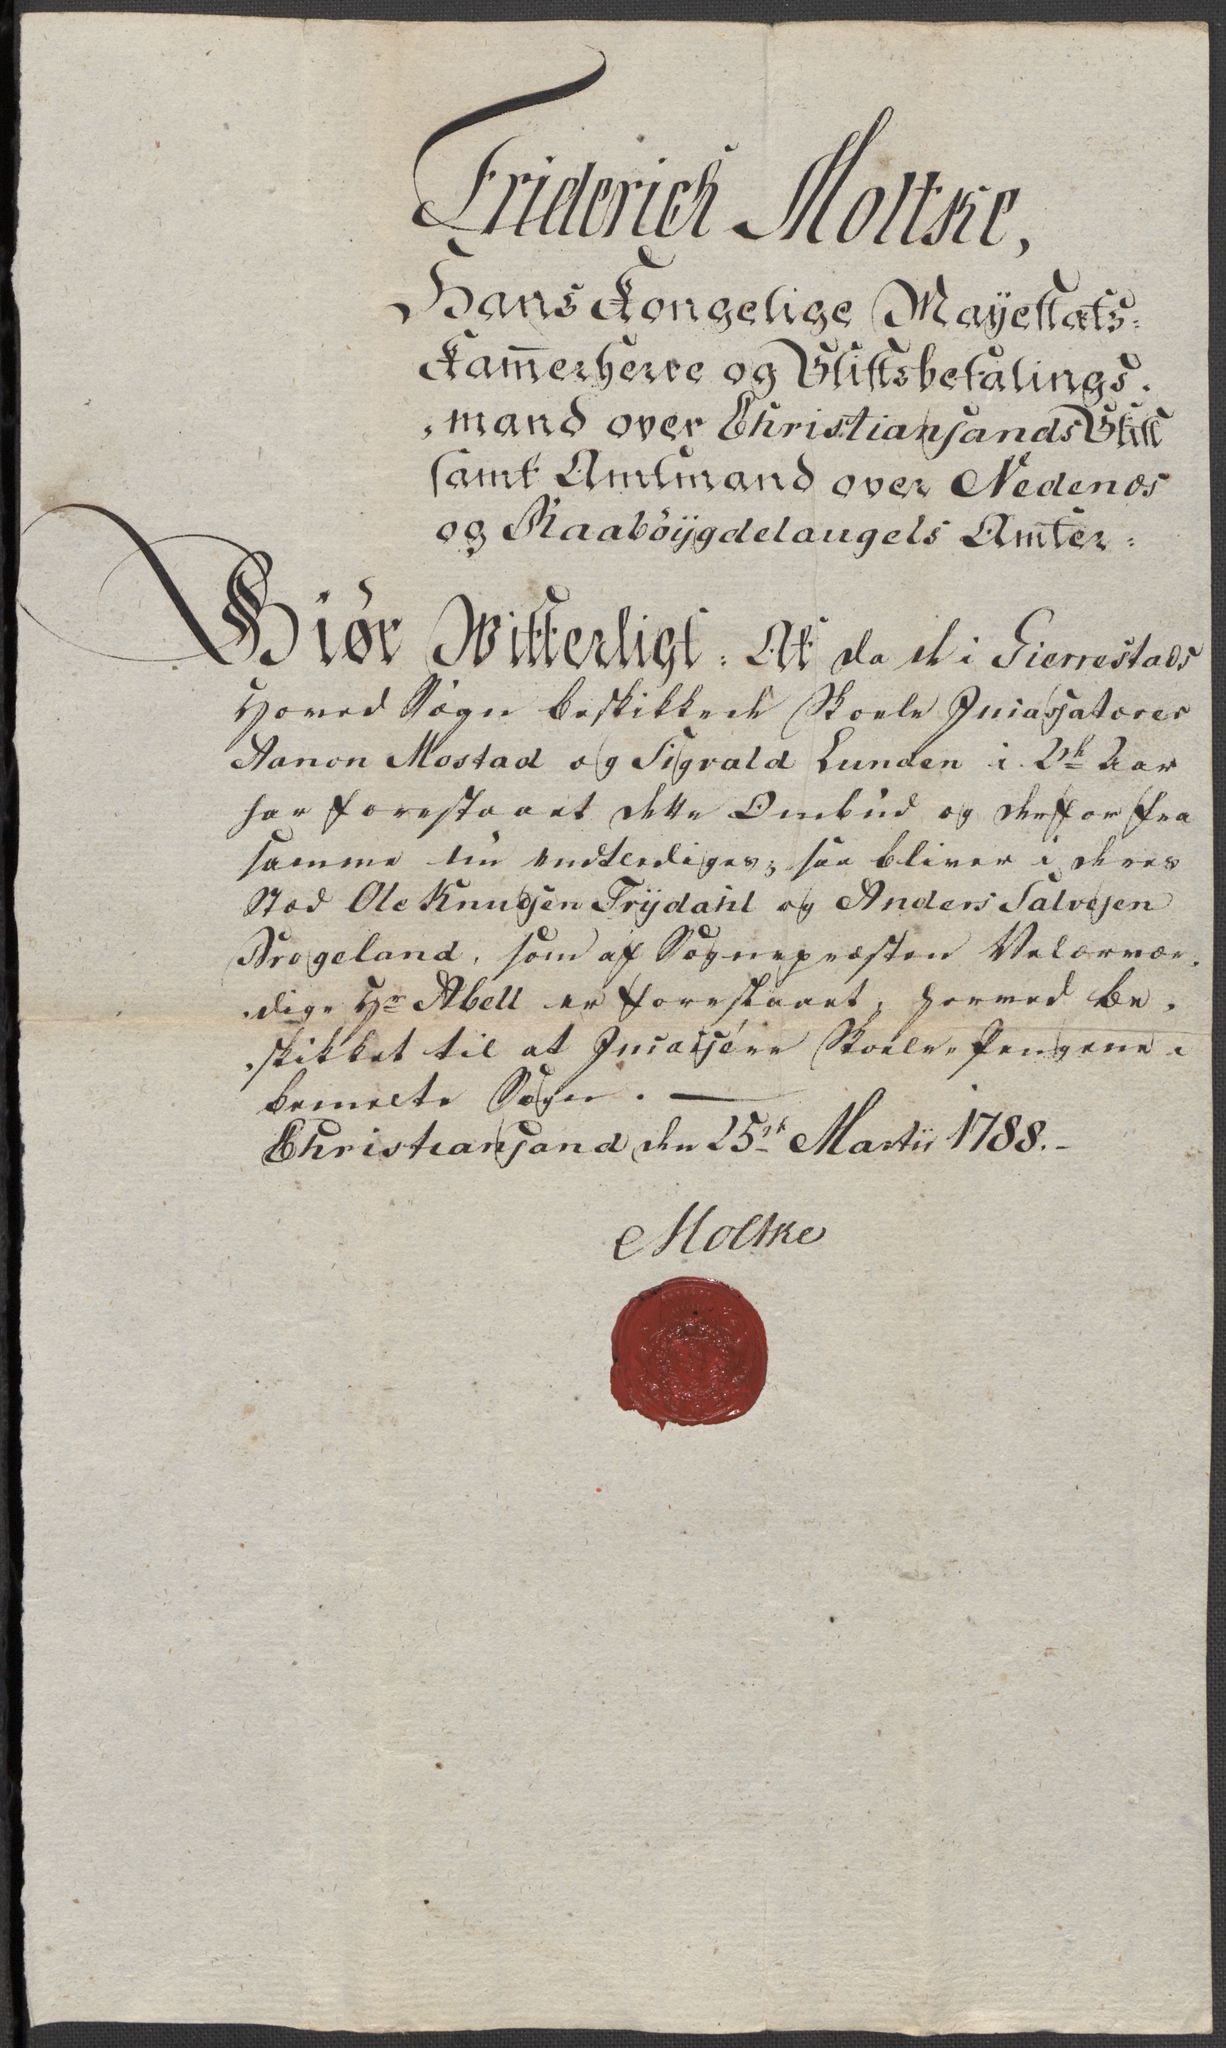 Friderich Moltke,
Hans Kongelige Mayestæts=
Kam̄erherre og Stiftsbefalings.
,mand over Christiansands Stift
samt Amtmand over Nedenæs
og Raabøÿgdelaugets Amter:
Giør Witterligt: At da de i Gierrestads
Hoved Sogn beskikkede Skoele Incassatores
Aanon Mostad og Sigvald Lunden i 2de Aar
har forestaaet dette Ombud og derfor fra
samme nu endtlediges; saa bliver i deres
Stæd Ole Knudsen Frÿdahl og Anders Salvesen
Brogeland, som af Sognepræsten Velærvær.
.dige Hr Abell er foreslaaet, herved be.
.skikket til at Incassere Skoele-Pengene i
bemelte Sogn. —
Christiansand den 25de Martii 1788.-
Moltke